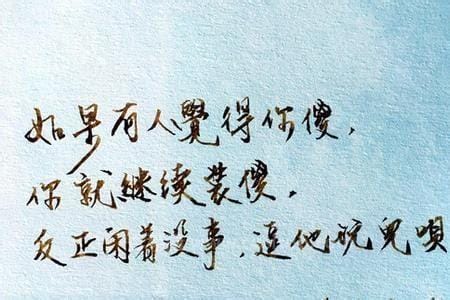 如果有人覺得你傻，
你就継续裝傻，
反正闲着没事，逗他玩兒唄